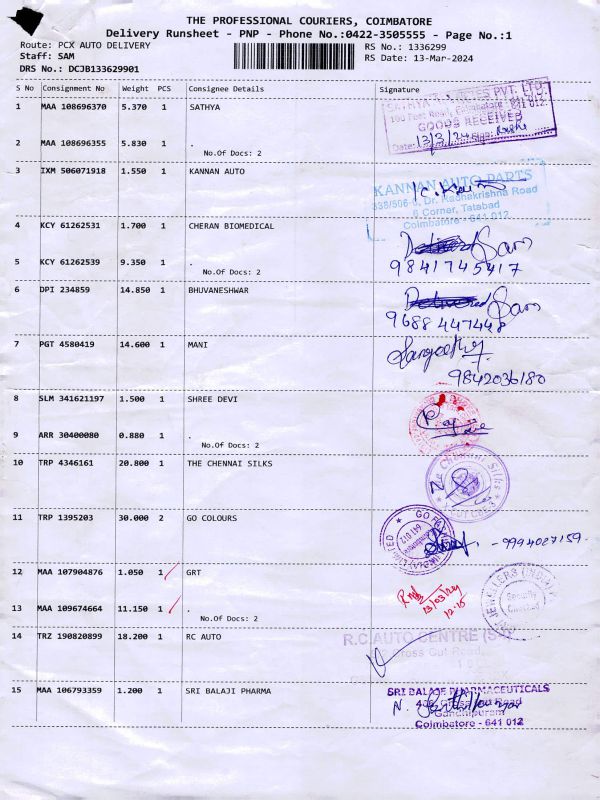 THE PROFESSIONAL COURIERS, COIMBATORE
Delivery Runsheet - PNP - Phone No.:0422-3505555 - Page No.:1
Route: PCX AUTO DELIVERY
RS No.: 1336299
Staff: SAM
RS Date: 13-Mar-2024
DRS No.: DCJB133629901
S No Consignment No Weight PCS Consignee Details Signature
1 MAA 108696370 5.370 1 SATHYA
GOODS RECEIVED
Date: 13/3/24
2 MAA 108696355 5.830 1 .
No.Of Docs: 2
3 IXM 506071918 1.550 1 KANNAN AUTO
KANNAN AUTO PARTS
Dr. Radhakrishna Road
6 Corner, Tatabad
Coimbatore - 641 012
4 KCY 61262531 1.700 1 CHERAN BIOMEDICAL
Sam
5 KCY 61262539 9.350 1 .
9841745417
No.Of Docs: 2
6 DPI 234859 14.850 1 BHUVANESHWAR
Sam
9688447448
7 PGT 4580419 14.600 1 MANI
Sangeetha
9842036180
8 SLM 341621197 1.500 1 SHREE DEVI
9 ARR 30400080 0.880 1 .
No.Of Docs: 2
10 TRP 4346161 20.800 1 THE CHENNAI SILKS
The Chennai Silks
11 TRP 1395203 30.000 2 GO COLOURS
641 012
- 9994027159.
12 MAA 107904876 1.050 1 GRT
13/03/24
12.15
Security
13 MAA 109674664 11.150 1 .
No.Of Docs: 2
14 TRZ 190820899 18.200 1 RC AUTO
R.C.AUTO CENTRE
Cross Cut Road
15 MAA 106793359 1.200 1 SRI BALAJI PHARMA
SRI BALAJI PHARMACEUTICALS
Gandhipuram
Coimbatore - 641 012